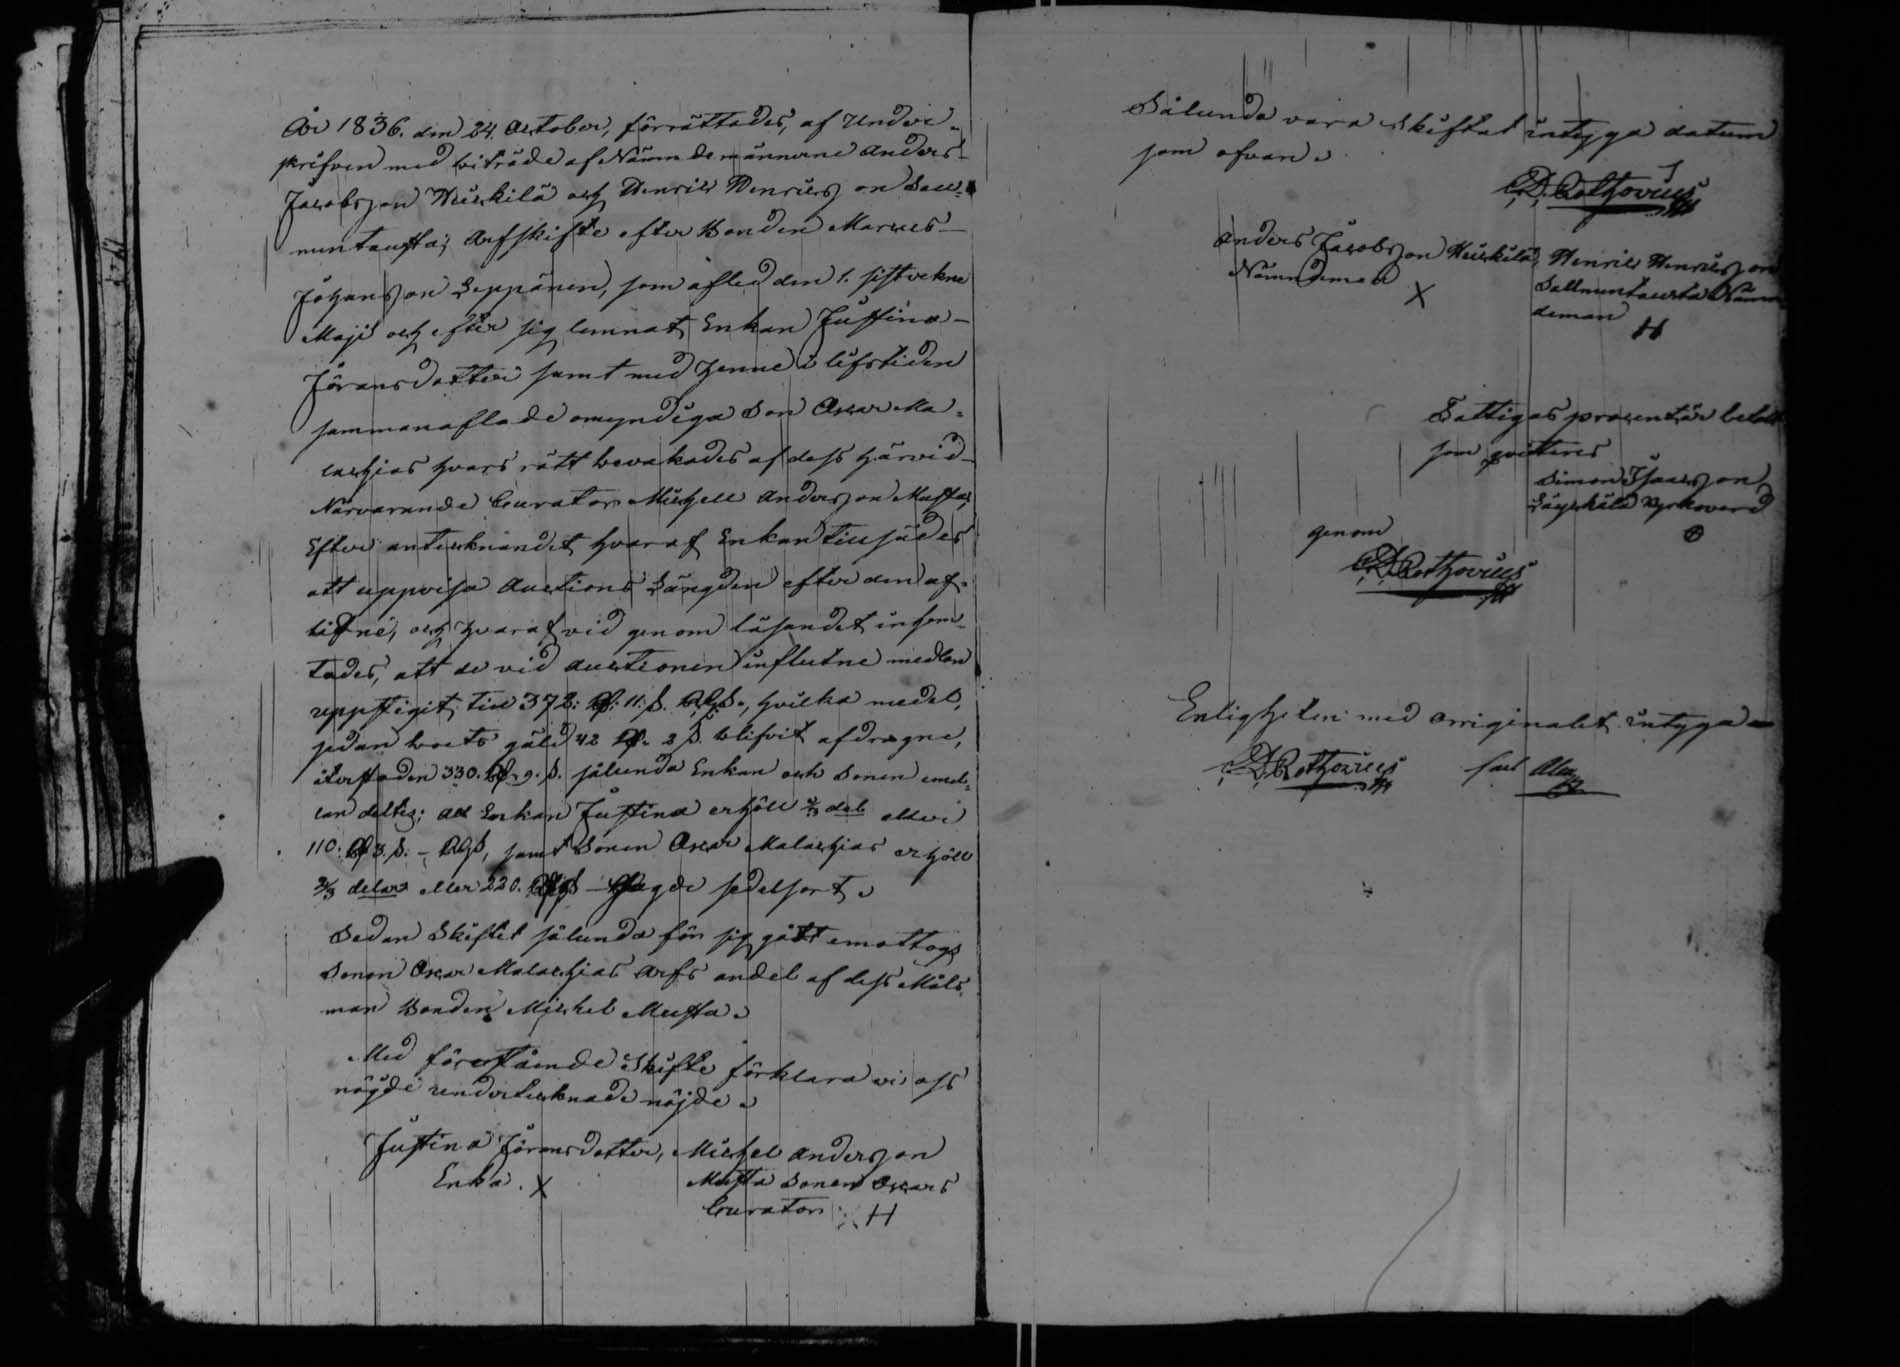 År 1836. den 24. October, förrättades, af Under-
skrifven med biträde af Nämndemännerne Anders
Jacobsson Heickilä och Henrik Henricsson Sall-
muntausta; Arfskifte efter Bonden Marcus
Johansson Leppänen, som afled den 1. sistvekne
Maji och efter sig lemnat Enkan Justina
Jöransdotter samt med henne i lifstiden
sammanaflade omyndiga Son Oscar Ma-
lachias hvars rätt bevakades af dess härvid
Närvarande Curator Michell Andersson Musta,
Efter antecknandet hvaraf Enkan tillsades
att uppvisa Auctions Längden efter den af-
lidne, och hvaraf vid genom läsandet inhem-
tades, att de vid auctionen influtne medlen
uppstigit till 372: 11: s. hvilka medel,
sedan boets gäld 42 2 s. blifvit afdragne,
återstoden 330. 9. s. sålunda Enkan och Sonen emel-
lan deltes; att Enkan Justina erhöll 1/3 del eller
110: 3. s. samt Sonen Oscar Malachias erhöll
2/3 delar eller 220. sedelsort.
Sedan Skiftet sålunda för sig gått emottogs
Sonen Oscar Malachias Arfs andel af dess Måls
man Bonden Michel Musta.
Med förestående Skifte förklara vi oss
nöjde undertecknade nöjde.
Justina Jöransdotter, Michel Andersson
Enka. X Musta Sonen Oscars
Curator H
Sålunda vara Skiftat intyga datum
som ofvan.
C. D. Rothovius
Anders Jacobsson Heickilä, Henric Henricsson
Nämndeman X Sallmuntausta Nämn-
deman H
Fattigas procent är betalt
som qvitteres
Simon Isacsson
Kyrkovärd
genom
C. D. Rothovius
Enligheten med orriginalet intyga
C. D. Rothovius Carl